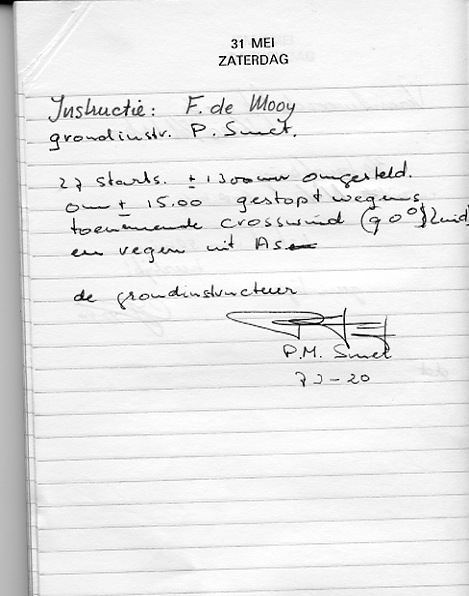 31 MEI
ZATERDAG
Instructie: F. de Mooy
grondinstr. P. Smet.
27 starts. ± 1300 uur omgesteld.
om ± 15.00 gestopt wegens
toenemende crosswind (90° Zuid)
en regen uit
de grondinstructeur
P.M. Smet